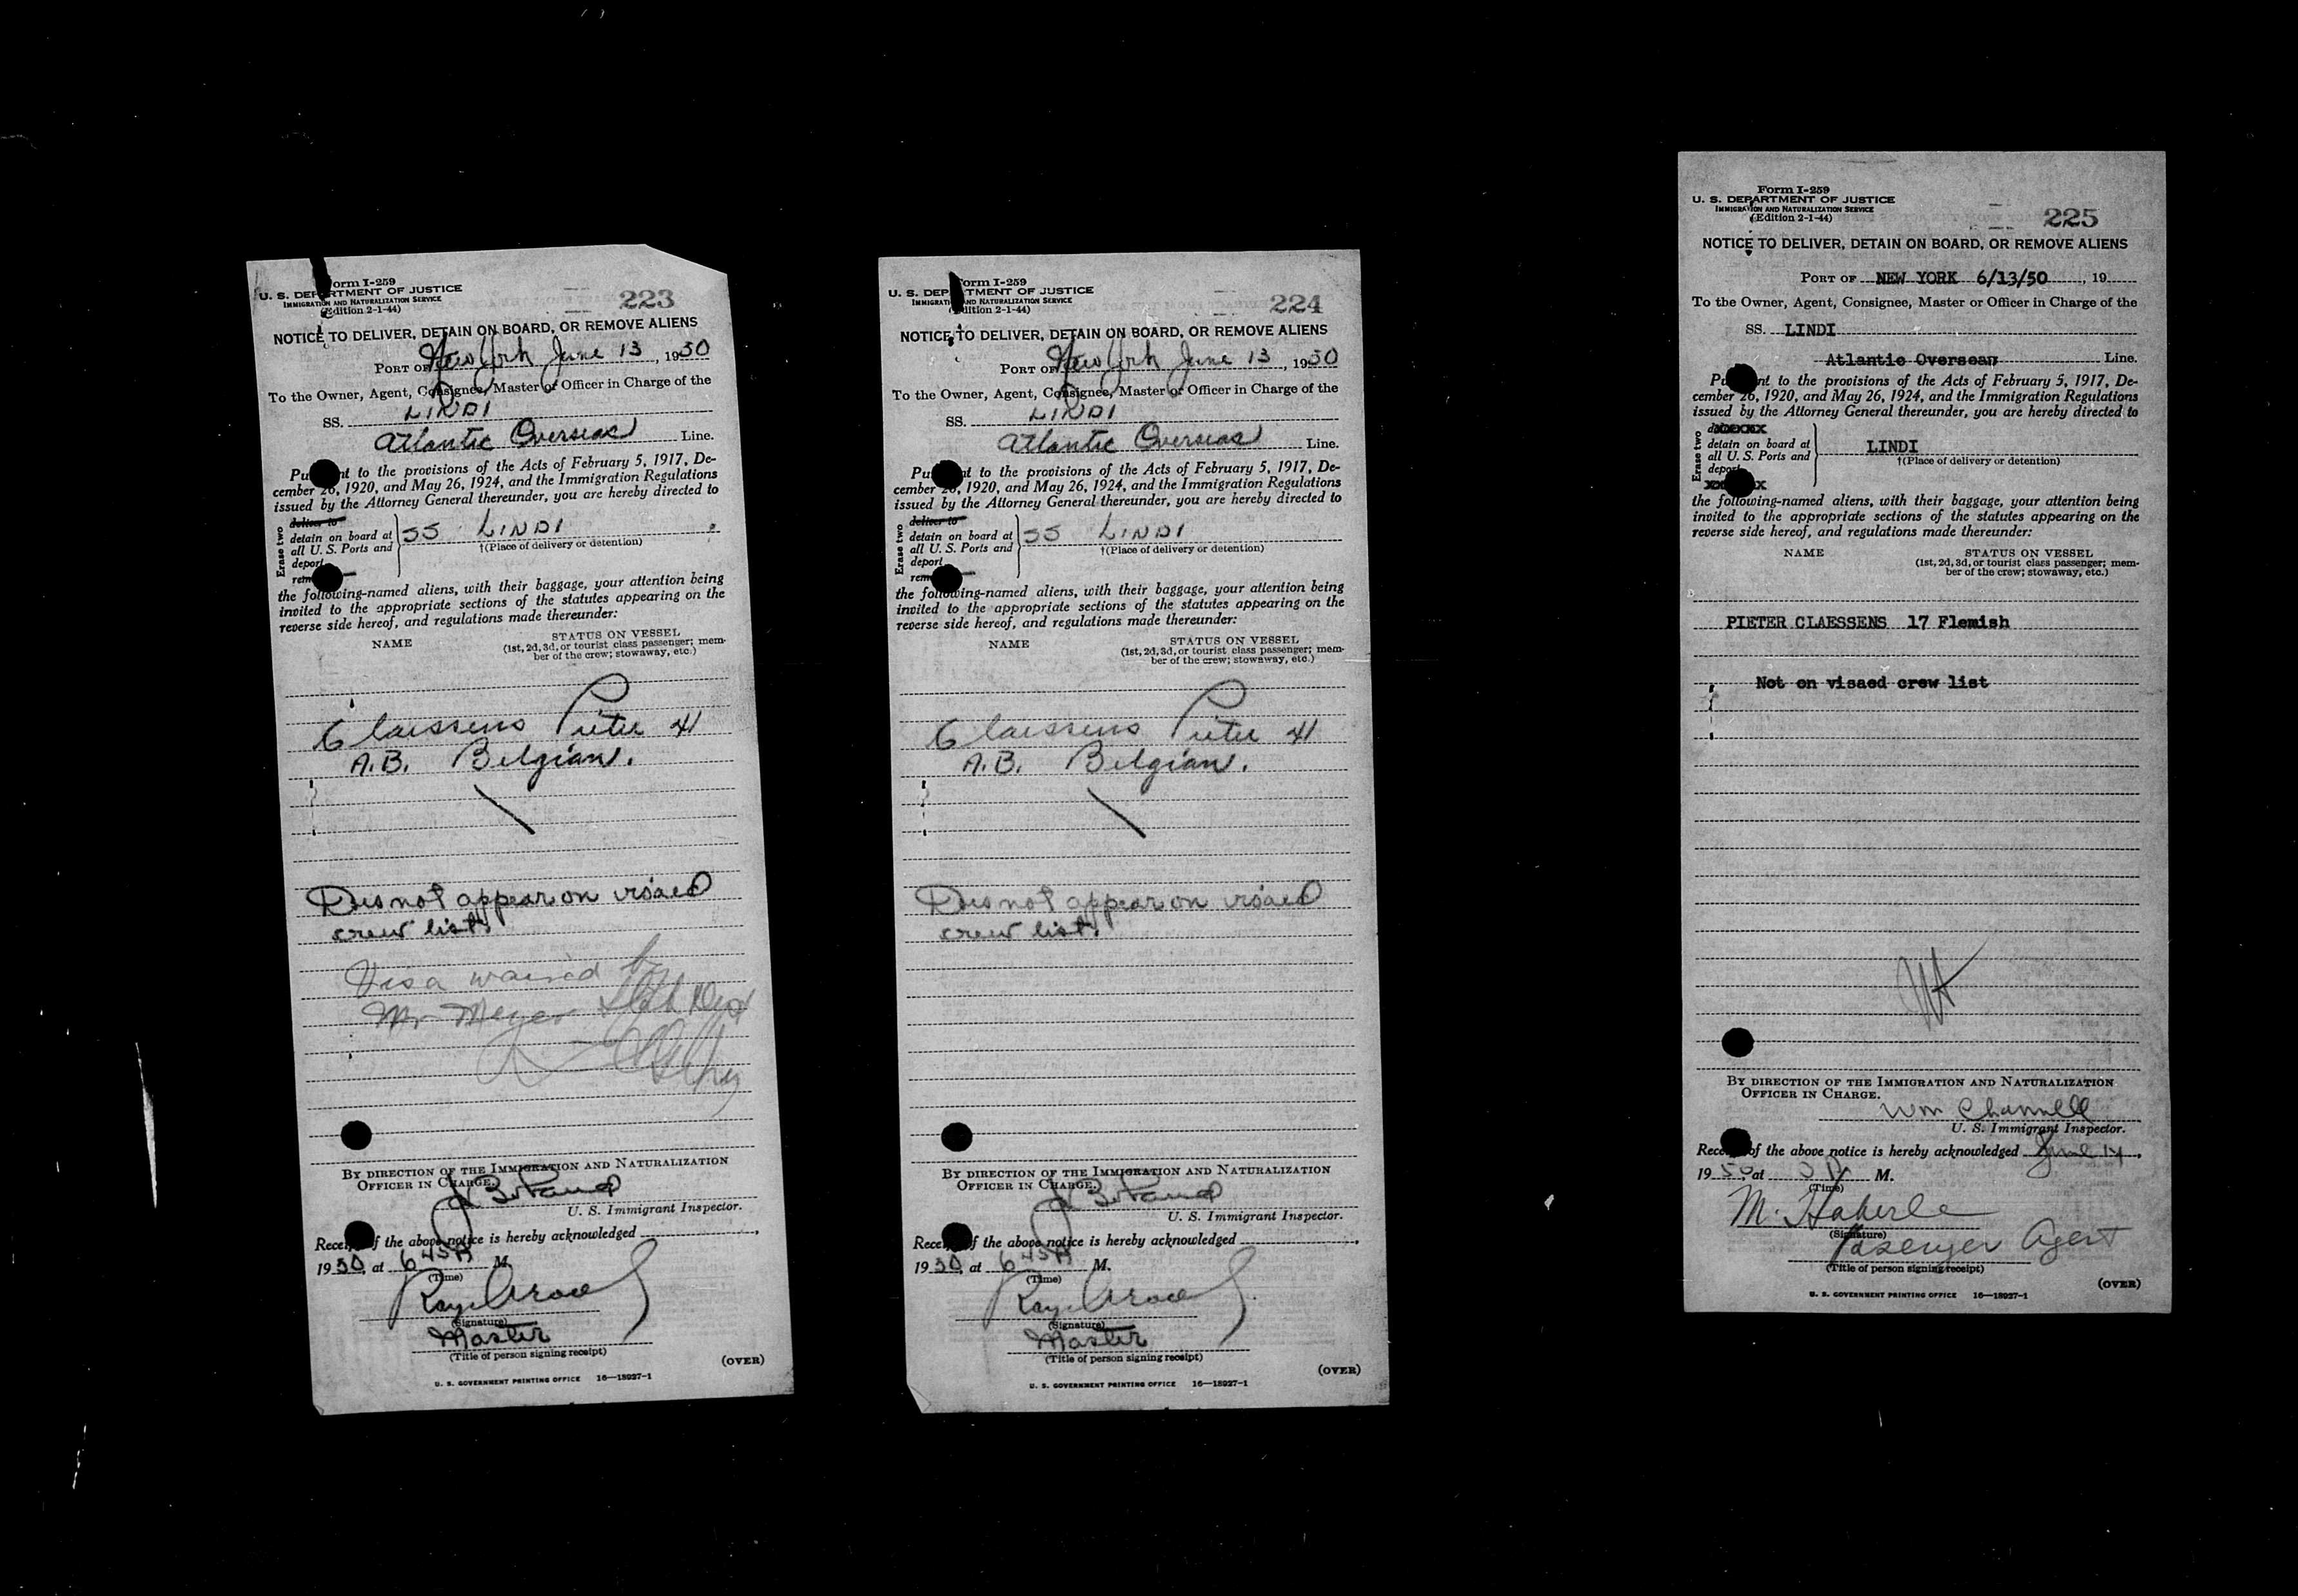 Form I-259
U. S. DEPARTMENT OF JUSTICE
IMMIGRATION AND NATURALIZATION SERVICE
(Edition 2-1-44)
223
NOTICE TO DELIVER, DETAIN ON BOARD, OR REMOVE ALIENS
PORT OF New York June 13, 1950
To the Owner, Agent, Consignee, Master or Officer in Charge of the
SS. LINDI
Atlantic Overseas Line.
Pursuant to the provisions of the Acts of February 5, 1917, De-
cember 26, 1920, and May 26, 1924, and the Immigration Regulations
issued by the Attorney General thereunder, you are hereby directed to
Erase two
deliver to
detain on board at
all U. S. Ports and
deport
SS LINDI
†(Place of delivery or detention)
the following-named aliens, with their baggage, your attention being
invited to the appropriate sections of the statutes appearing on the
reverse side hereof, and regulations made thereunder:
NAME
STATUS ON VESSEL
(1st, 2d, 3d, or tourist class passenger; mem-
ber of the crew; stowaway, etc.)
Claessens Pieter 41
A.B. Belgian.
Does not appear on visaed
crew list.
Visa waived by
Mr Meyer State Dept
BY DIRECTION OF THE IMMIGRATION AND NATURALIZATION
OFFICER IN CHARGE.
U. S. Immigrant Inspector.
Receipt of the above notice is hereby acknowledged
1950, at 6 45 P M.
(Time)
(Signature)
Master
(Title of person signing receipt)
(OVER)
U. S. GOVERNMENT PRINTING OFFICE 16—18927-1
Form I-259
U. S. DEPARTMENT OF JUSTICE
IMMIGRATION AND NATURALIZATION SERVICE
(Edition 2-1-44)
224
NOTICE TO DELIVER, DETAIN ON BOARD, OR REMOVE ALIENS
PORT OF New York June 13, 1950
To the Owner, Agent, Consignee, Master or Officer in Charge of the
SS. LINDI
Atlantic Overseas Line.
Pursuant to the provisions of the Acts of February 5, 1917, De-
cember 26, 1920, and May 26, 1924, and the Immigration Regulations
issued by the Attorney General thereunder, you are hereby directed to
Erase two
deliver to
detain on board at
all U. S. Ports and
deport
SS LINDI
†(Place of delivery or detention)
the following-named aliens, with their baggage, your attention being
invited to the appropriate sections of the statutes appearing on the
reverse side hereof, and regulations made thereunder:
NAME
STATUS ON VESSEL
(1st, 2d, 3d, or tourist class passenger; mem-
ber of the crew; stowaway, etc.)
Claessens Pieter 41
A.B. Belgian.
Does not appear on visaed
crew list.
BY DIRECTION OF THE IMMIGRATION AND NATURALIZATION
OFFICER IN CHARGE.
U. S. Immigrant Inspector.
Receipt of the above notice is hereby acknowledged
1950, at 6 45 P M.
(Time)
(Signature)
Master
(Title of person signing receipt)
(OVER)
U. S. GOVERNMENT PRINTING OFFICE 16—18927-1
Form I-259
U. S. DEPARTMENT OF JUSTICE
IMMIGRATION AND NATURALIZATION SERVICE
(Edition 2-1-44)
225
NOTICE TO DELIVER, DETAIN ON BOARD, OR REMOVE ALIENS
PORT OF NEW YORK 6/13/50, 19
To the Owner, Agent, Consignee, Master or Officer in Charge of the
SS. LINDI
Atlantic Oversean Line.
Pursuant to the provisions of the Acts of February 5, 1917, De-
cember 26, 1920, and May 26, 1924, and the Immigration Regulations
issued by the Attorney General thereunder, you are hereby directed to
Erase two
detain on board at
all U. S. Ports and
deport
LINDI
†(Place of delivery or detention)
the following-named aliens, with their baggage, your attention being
invited to the appropriate sections of the statutes appearing on the
reverse side hereof, and regulations made thereunder:
NAME
STATUS ON VESSEL
(1st, 2d, 3d, or tourist class passenger; mem-
ber of the crew; stowaway, etc.)
PIETER CLAESSENS 17 Flemish
Not on visaed crew list
BY DIRECTION OF THE IMMIGRATION AND NATURALIZATION
OFFICER IN CHARGE.
Wm Channell
U. S. Immigrant Inspector.
Receipt of the above notice is hereby acknowledged June 14,
1950, at 3 P M.
(Time)
M. Haberle
(Signature)
Passenger Agent
(Title of person signing receipt)
(OVER)
U. S. GOVERNMENT PRINTING OFFICE 16—18927-1